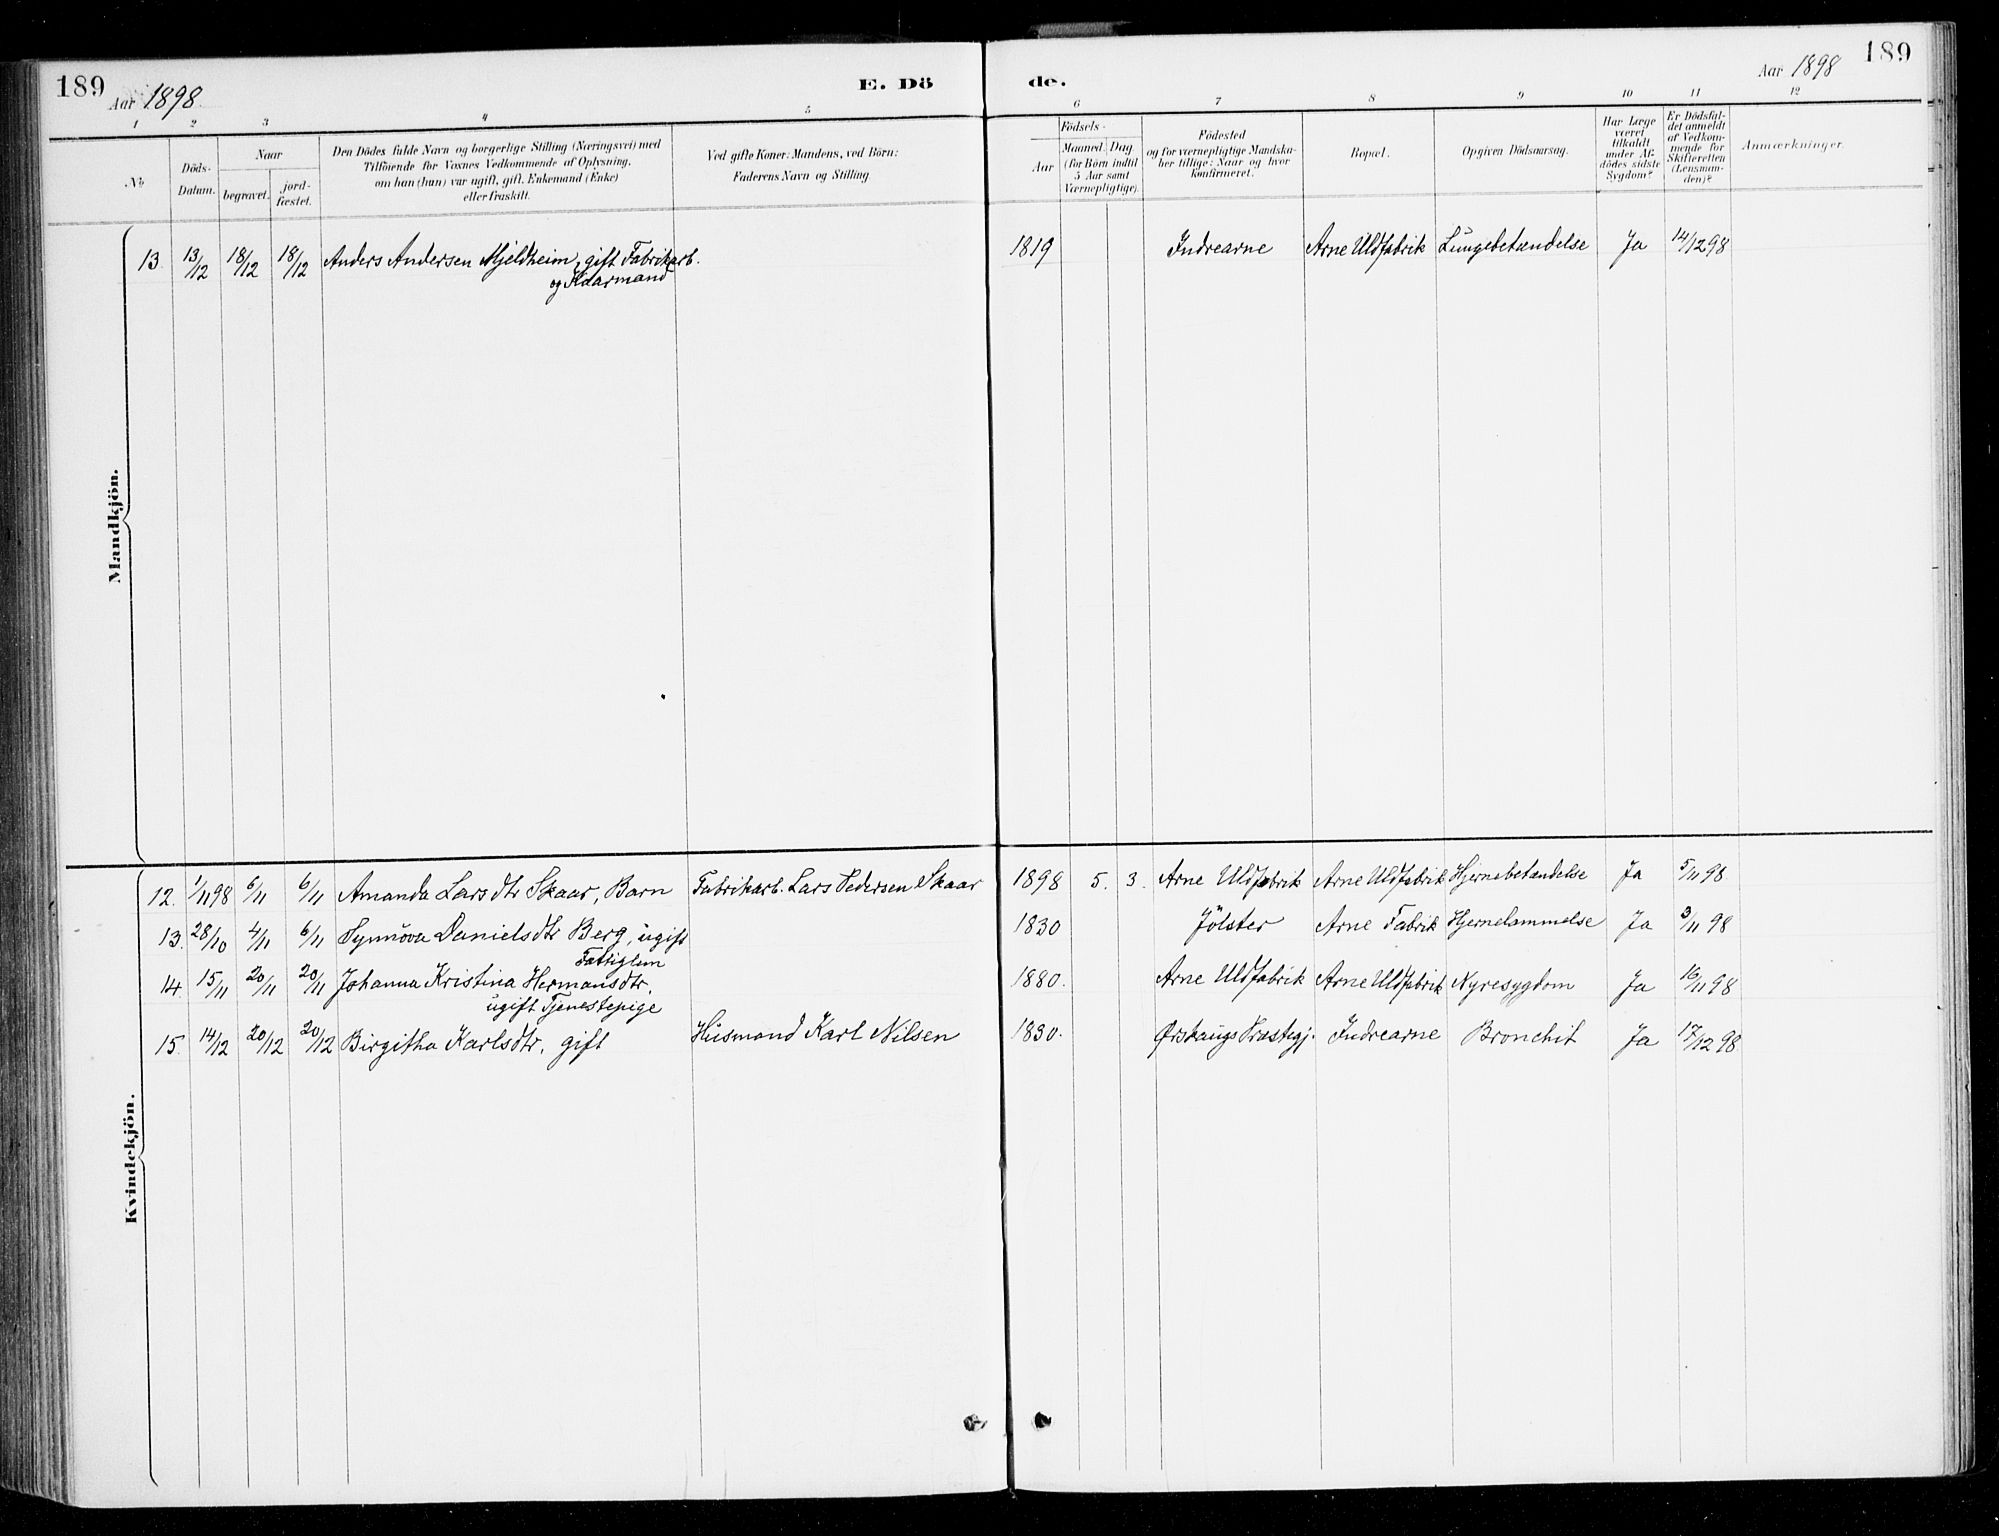 189
Aar 1898.
E. Dö
de.
Aar 1898
189
1 2 3 4 5 6 7 8 9 10 11 12
No
Döds-
Datum.
Naar
begravet.
jord-
fæstet.
Den Dödes fulde Navn og borgerlige Stilling (Næringsvei) med
Tilföiende for Voxnes Vedkommende af Oplysning,
om han (hun) var ugift, gift, Enkemand (Enke)
eller fraskilt.
Ved gifte Koner: Mandens, ved Börn:
Faderens Navn og Stilling.
Födsels-
Aar
Maaned.
Dag
(for Börn indtil
5 Aar samt
Værnepligtige).
Födested
og for værnepligtige Mandska-
ber tillige: Naar og hvor
konfirmeret.
Bopæl.
Opgiven Dödsaarsag.
Har Læge
været
tilkaldt
under Af-
dödes sidste
Sygdom?
Er Dödsfal-
det anmeldt
af Vedkom-
mende for
Skifteretten
(Lensman-
den)?
Anmærkninger.
Mandkjön.
13. 13/12 18/12 18/12 Anders Andersen Mjeldheim, gift Fabrikarb. 1819 Indrearne Arne Uldfabrik Lungebetændelse Ja 14/12 98
og Kaarmand
Kvindekjön.
12. 1/11 98 6/11 6/11 Amanda Larsdtr Skaar, Barn Fabrikarb. Lars Pedersen Skaar 1898 5. 3. Arne Uldfabrik Arne Uldfabrik Hjernebetændelse Ja 5/11 98.
13. 28/10 4/11 6/11 Synnöva Danielsdtr Berg, ugift 1830 Jölster Arne Fabrik Hjernelammelse Ja 3/11 98
Fattiglem
14. 15/11 20/11 20/11 Johanna Kristina Hermansdtr. 1880. Arne Uldfabrik Arne Uldfabrik Nyresygdom Ja 16/11 98
ugift Tjenestepige
15. 14/12 20/12 20/12 Birgitha Karlsdtr. gift Husmand Karl Nilsen 1830. Ørskaugs Præstegj. Indrearne Bronchit Ja 17/12 98.